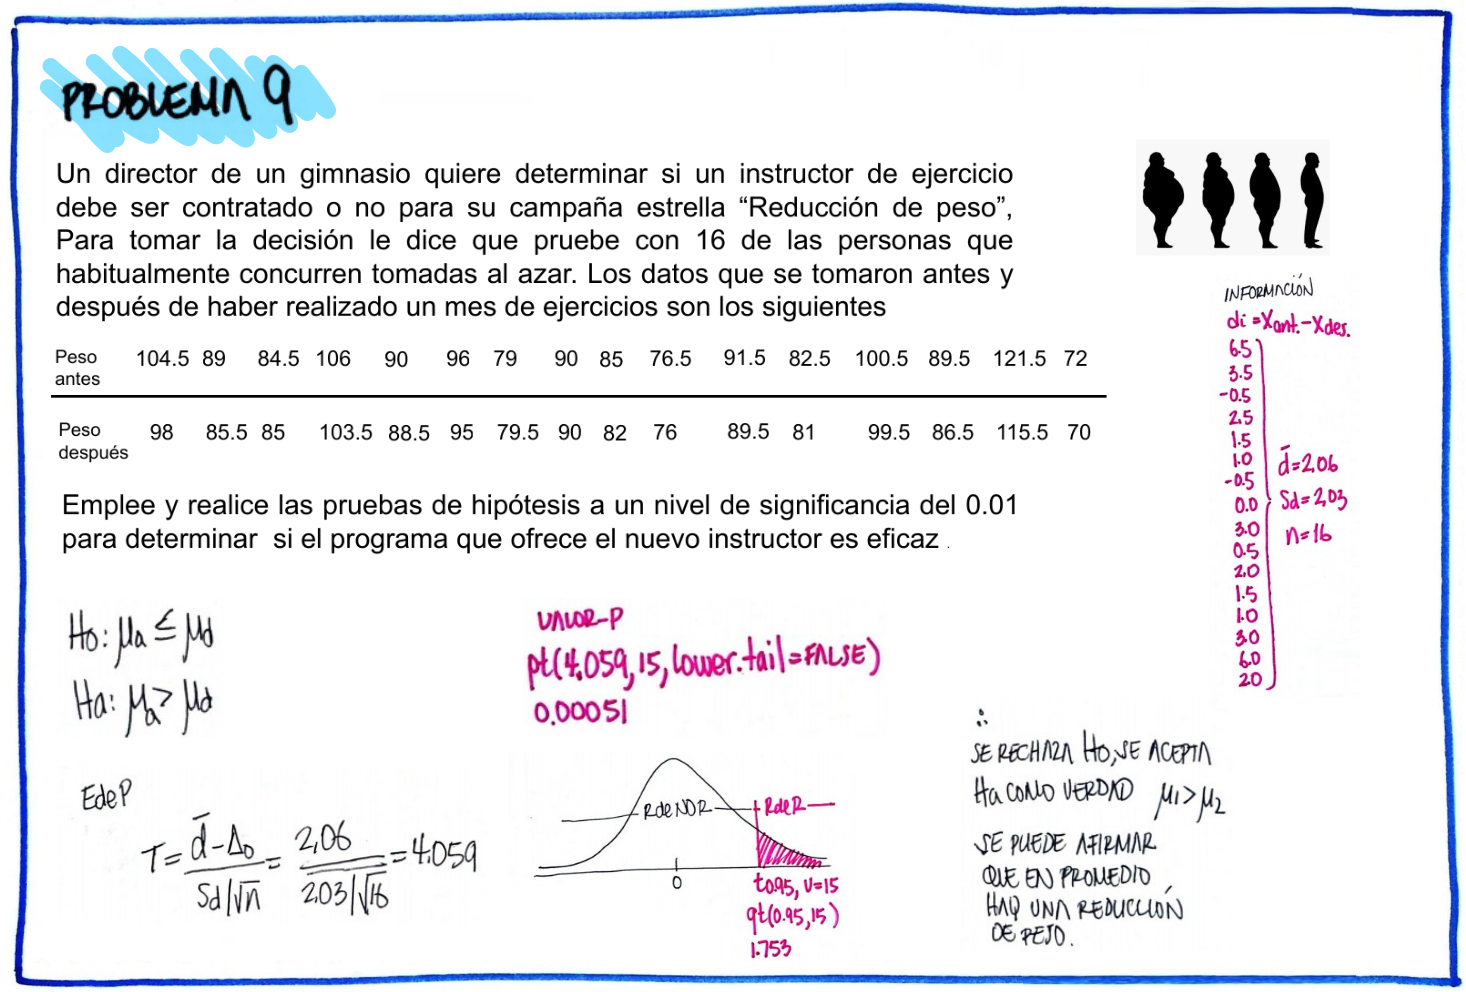 PROBLEMA 9
Un director de un gimnasio quiere determinar si un instructor de ejercicio
debe ser contratado o no para su campaña estrella “Reducción de peso”,
Para tomar la decisión le dice que pruebe con 16 de las personas que
habitualmente concurren tomadas al azar. Los datos que se tomaron antes y
después de haber realizado un mes de ejercicios son los siguientes
Peso antes 104.5 89 84.5 106 90 96 79 90 85 76.5 91.5 82.5 100.5 89.5 121.5 72
Peso después 98 85.5 85 103.5 88.5 95 79.5 90 82 76 89.5 81 99.5 86.5 115.5 70
Emplee y realice las pruebas de hipótesis a un nivel de significancia del 0.01
para determinar si el programa que ofrece el nuevo instructor es eficaz .
INFORMACIÓN
di = Xant. - Xdes.
6.5
3.5
-0.5
2.5
1.5
1.0
-0.5
0.0
3.0
0.5
2.0
1.5
1.0
3.0
6.0
2.0
d̄=2,06
Sd=2,03
n=16
Ho: μa ≤ μd
Ha: μa > μd
EdeP
T = (d̄ - Δ0)/(Sd/√n) = 2,06/(2.03/√16) = 4.059
VALOR-P
pt(4.059, 15, lower.tail=FALSE)
0.00051
RdeNOR RdeR
0
t0.95, V=15
qt(0.95,15)
1.753
∴
SE RECHAZA Ho, SE ACEPTA
Ha COMO VERDAD μ1 > μ2
SE PUEDE AFIRMAR
QUE EN PROMEDIO
HAY UNA REDUCCIÓN
DE PESO.